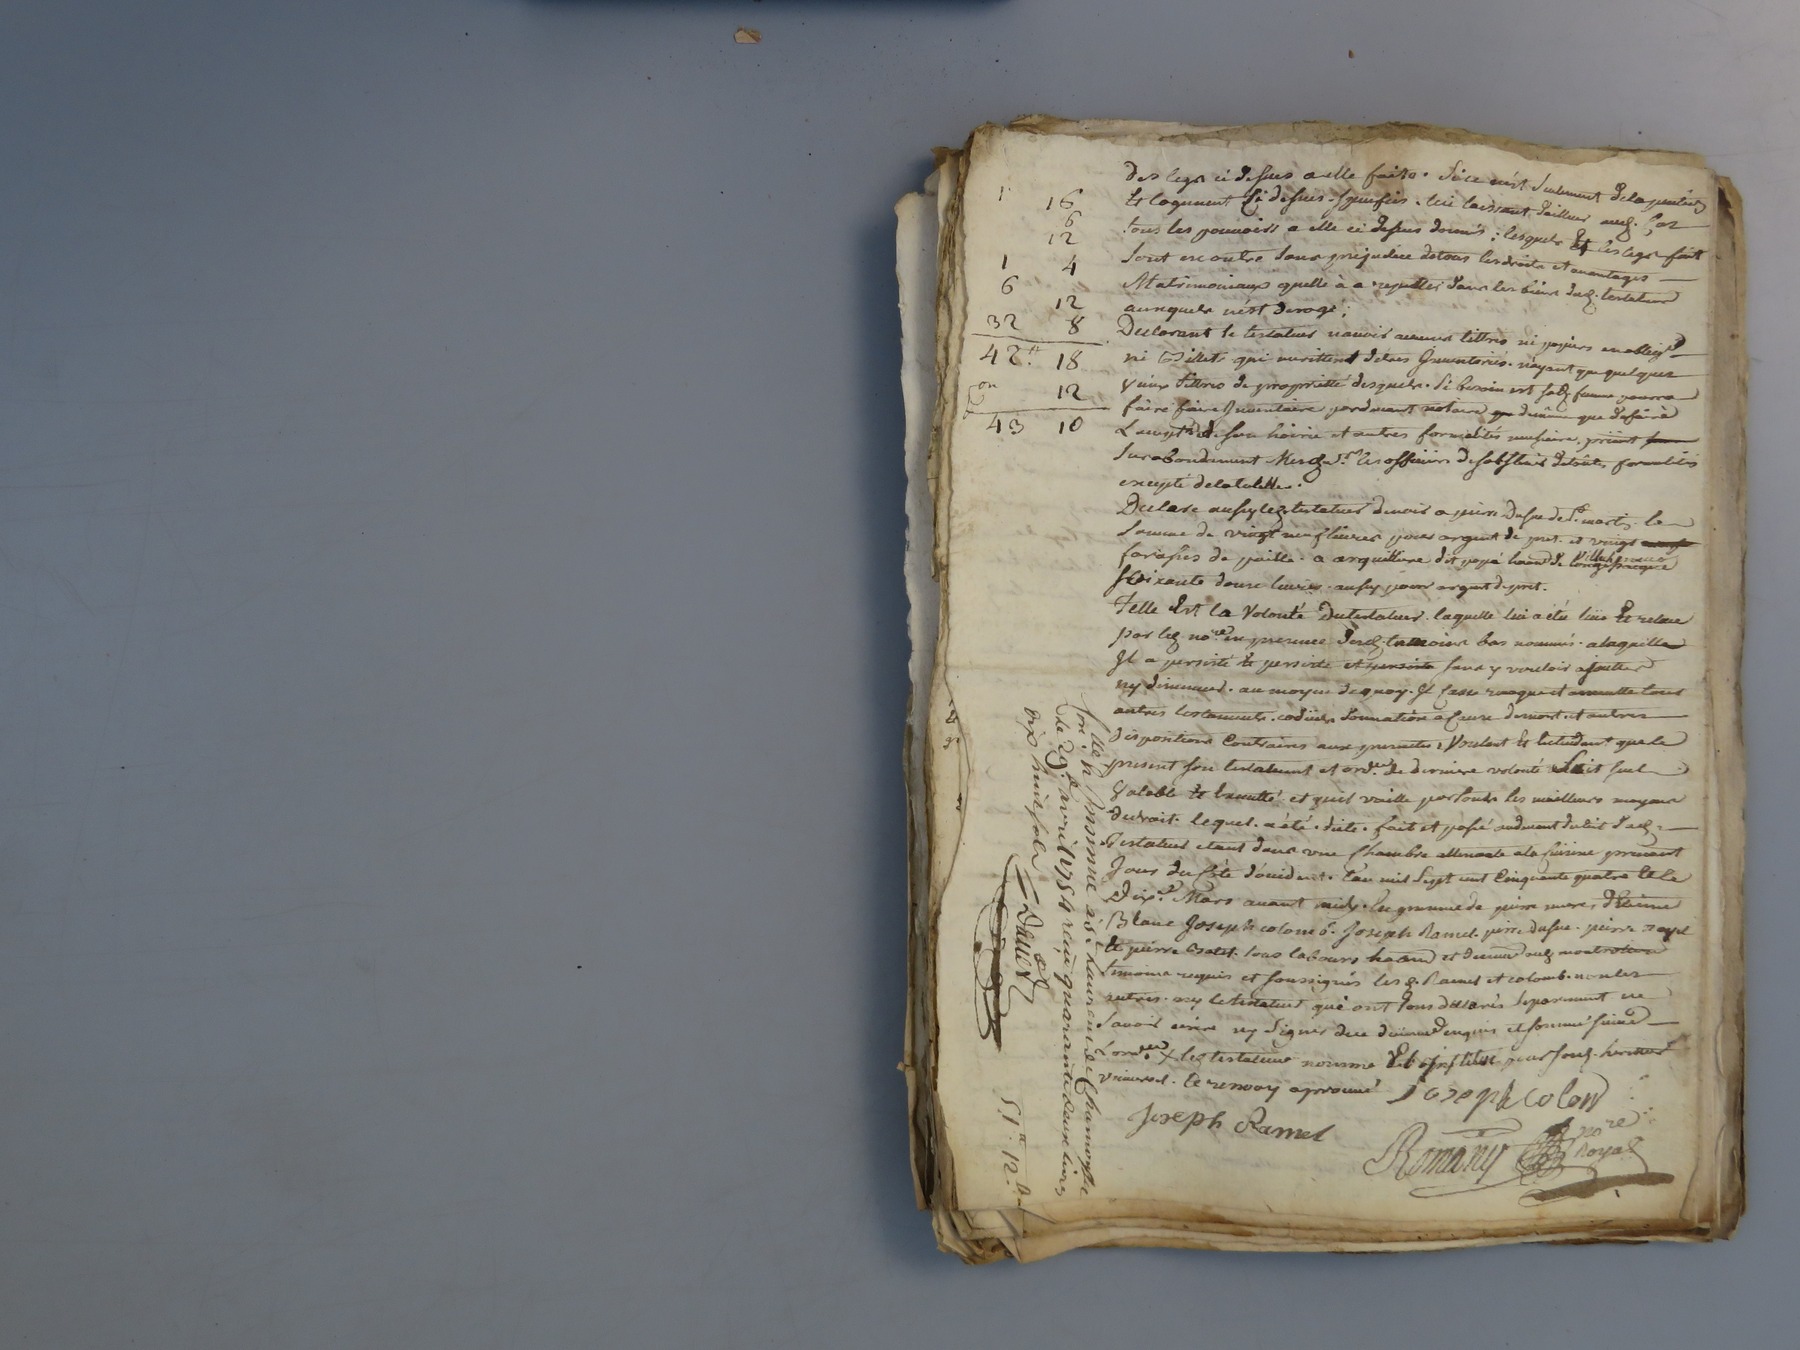 des legs ci dessus a elle faits. Si ce n'est seulement de la pention
et logement ci dessus specifiés. lui laissant d'ailleurs
tous les pouvoirs a elle ci dessus donnés; lesquels et les legs fait
sont en outre sans prejudice de tous les droits et avantages
Matrimoniaux quelle à a repetter sur les biens dud. testateur
auxquels n'est derogé;
Declarant le testateur n'avoir aucuns tittres ni papiers
ni Billets qui merittent detres Inventoriés. n'ayant que quelques
vieux tittres de proprietté desquels. Si besoin est sad. femme pourra
faire faire Inventaire pardevant notaire de même que
de son hoirie et autres formalités necessaire, priant
surabondament les officiers de toutes formalités
excepté de la tutelle.
Declare aussy led. testateur devoir a pierre Dusue de St. martin la
somme de vingt neuf livres pour argent de pret. et vingt
de paille. a arguilliere dit papa
soixante douze livres. aussy pour argent de pret.
Telle Est la Volonté du testateur. laquelle lui a été lüe Et relue
par led. nore. en presence desd. temoins bas nommés. a laquelle
Il a persisté et persiste et persiste sans y vouloir ajoutter
ny diminuer. au moyen de quoy. Il casse revoque et annulle tous
autres testaments. codicils donnation a cause de mort. et autres
dispositions Contraires aux presentes; Voulant Et Entendant que le
present son testament et ordce. de derniere volonté soit seul
Valable et Executté et quil vaille par touts les meilleurs moyens
de droit. lequel. a été. dite. fait et passé audevant du lit dud.
Testateur etant dans une Chambre attenante a la Cuisine prennant
Jour du Côté d'occident. l'an mil sept cent Cinquante quatre Et le
Dixe. Mars avant midy. En presence de pierre
Blanc Joseph colomb. Joseph Ramel. pierre Dusue. pierre
et pierre tous labours
temoins requis et soussignés les d. Ramel et colomb. non les
autres. ny le testateur qui ont tous declarés separement ne
savoir ecrire ny signer de ce düement enquis et sommé suivt.
l'ordce. X led. testateur nomme Et institue pour son d. heritier
universel. le renvoy approuvé Joseph Colon
Joseph Ramel
Romany nore Royal
1 16
6
12
1 4
6
12
32 8
42tt. 18
12
43 10
le 29e. avril 1754 reçu quarante deux livres
dix huit sols
Dauer
51tt. 12s.